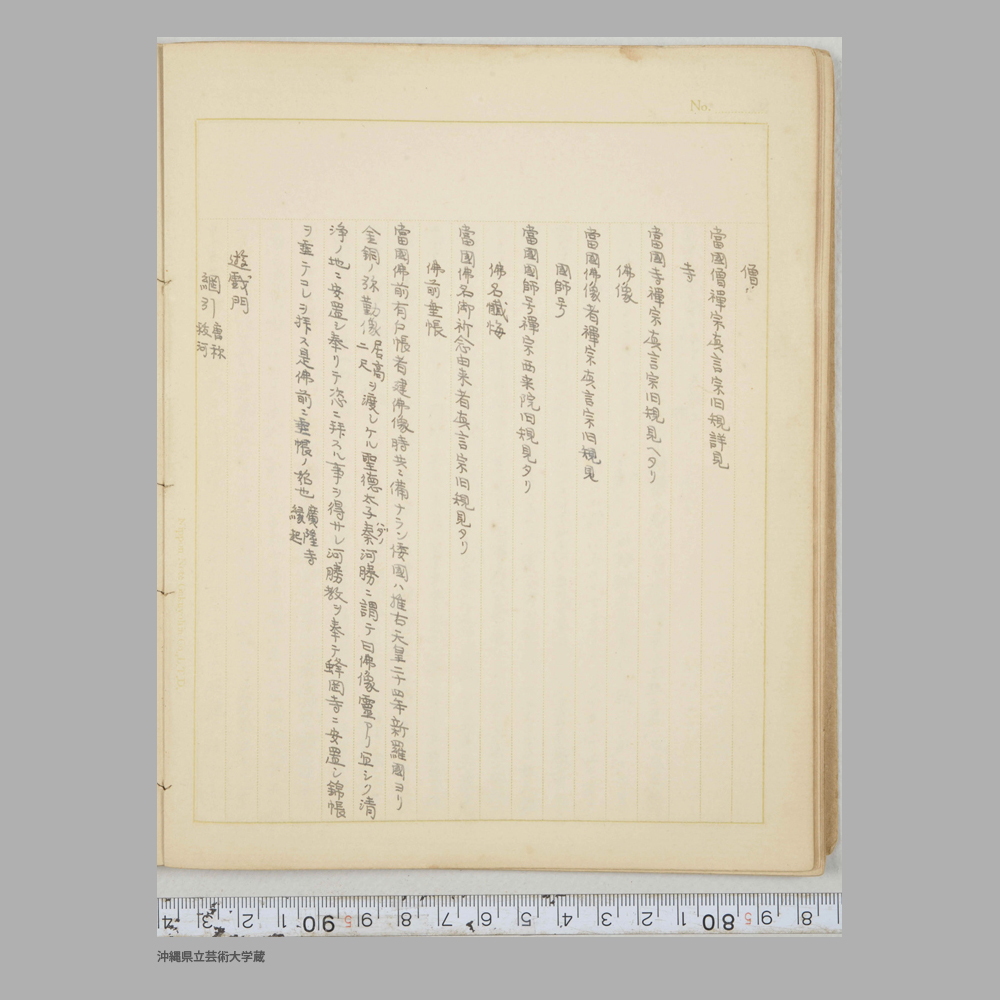 No.
僧
當國僧禪宗真言宗旧規詳見
寺
當國寺禪宗真言宗旧規見ヘタリ
佛像
當國佛像者禪宗真言宗旧規見
國師号
當國國師号禪宗西来院旧規見タリ
佛名懺悔
當國佛名御祈念由来者真言宗旧規見タリ
佛前垂帳
當國佛前有戸帳者建佛像時共ニ備ナラン倭國ハ推古天皇二十四年新羅國ヨリ
金銅ノ弥勤像居高二尺ヲ渡シケル聖徳太子秦河勝ニ謂テ曰佛像靈アリ宜シク清
浄ノ地ニ安置シ奉リテ恣ニ拝スル事ヲ得サレ河勝教ヲ奉テ蜂岡寺ニ安置シ錦帳
ヲ垂テコレヲ拝ス是佛前ニ垂帳ノ始也 廣隆寺縁起
遊戲門
綱引
沖縄県立芸術大学蔵